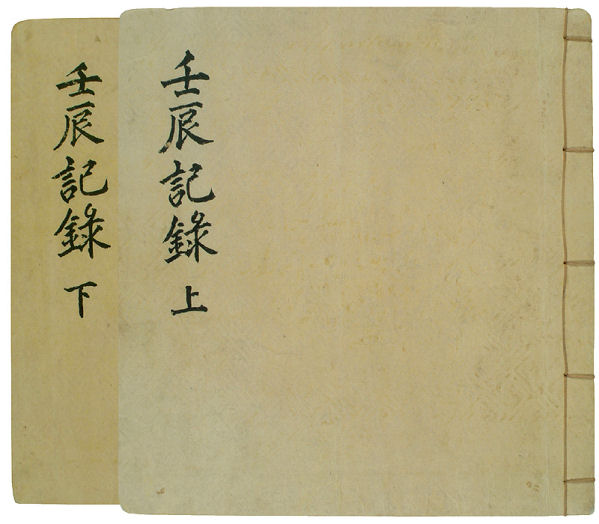 壬辰記錄上
壬辰記錄下